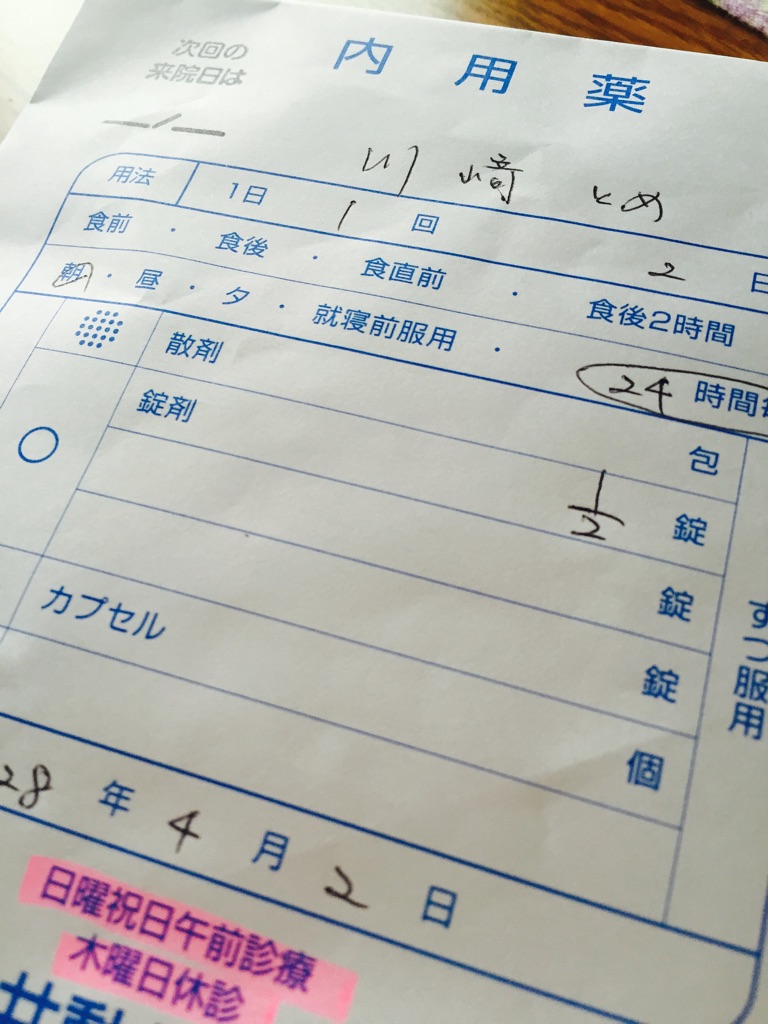 次回の
来院日は
／
内用薬
川﨑 とめ
用法 1日 1 回 2 日
食前・食後・食直前・食後2時間
朝・昼・夕・就寝前服用・24時間
散剤 包
錠剤 1/2 錠
錠
錠
カプセル 個
ずつ服用
28年4月2日
日曜祝日午前診療
木曜日休診